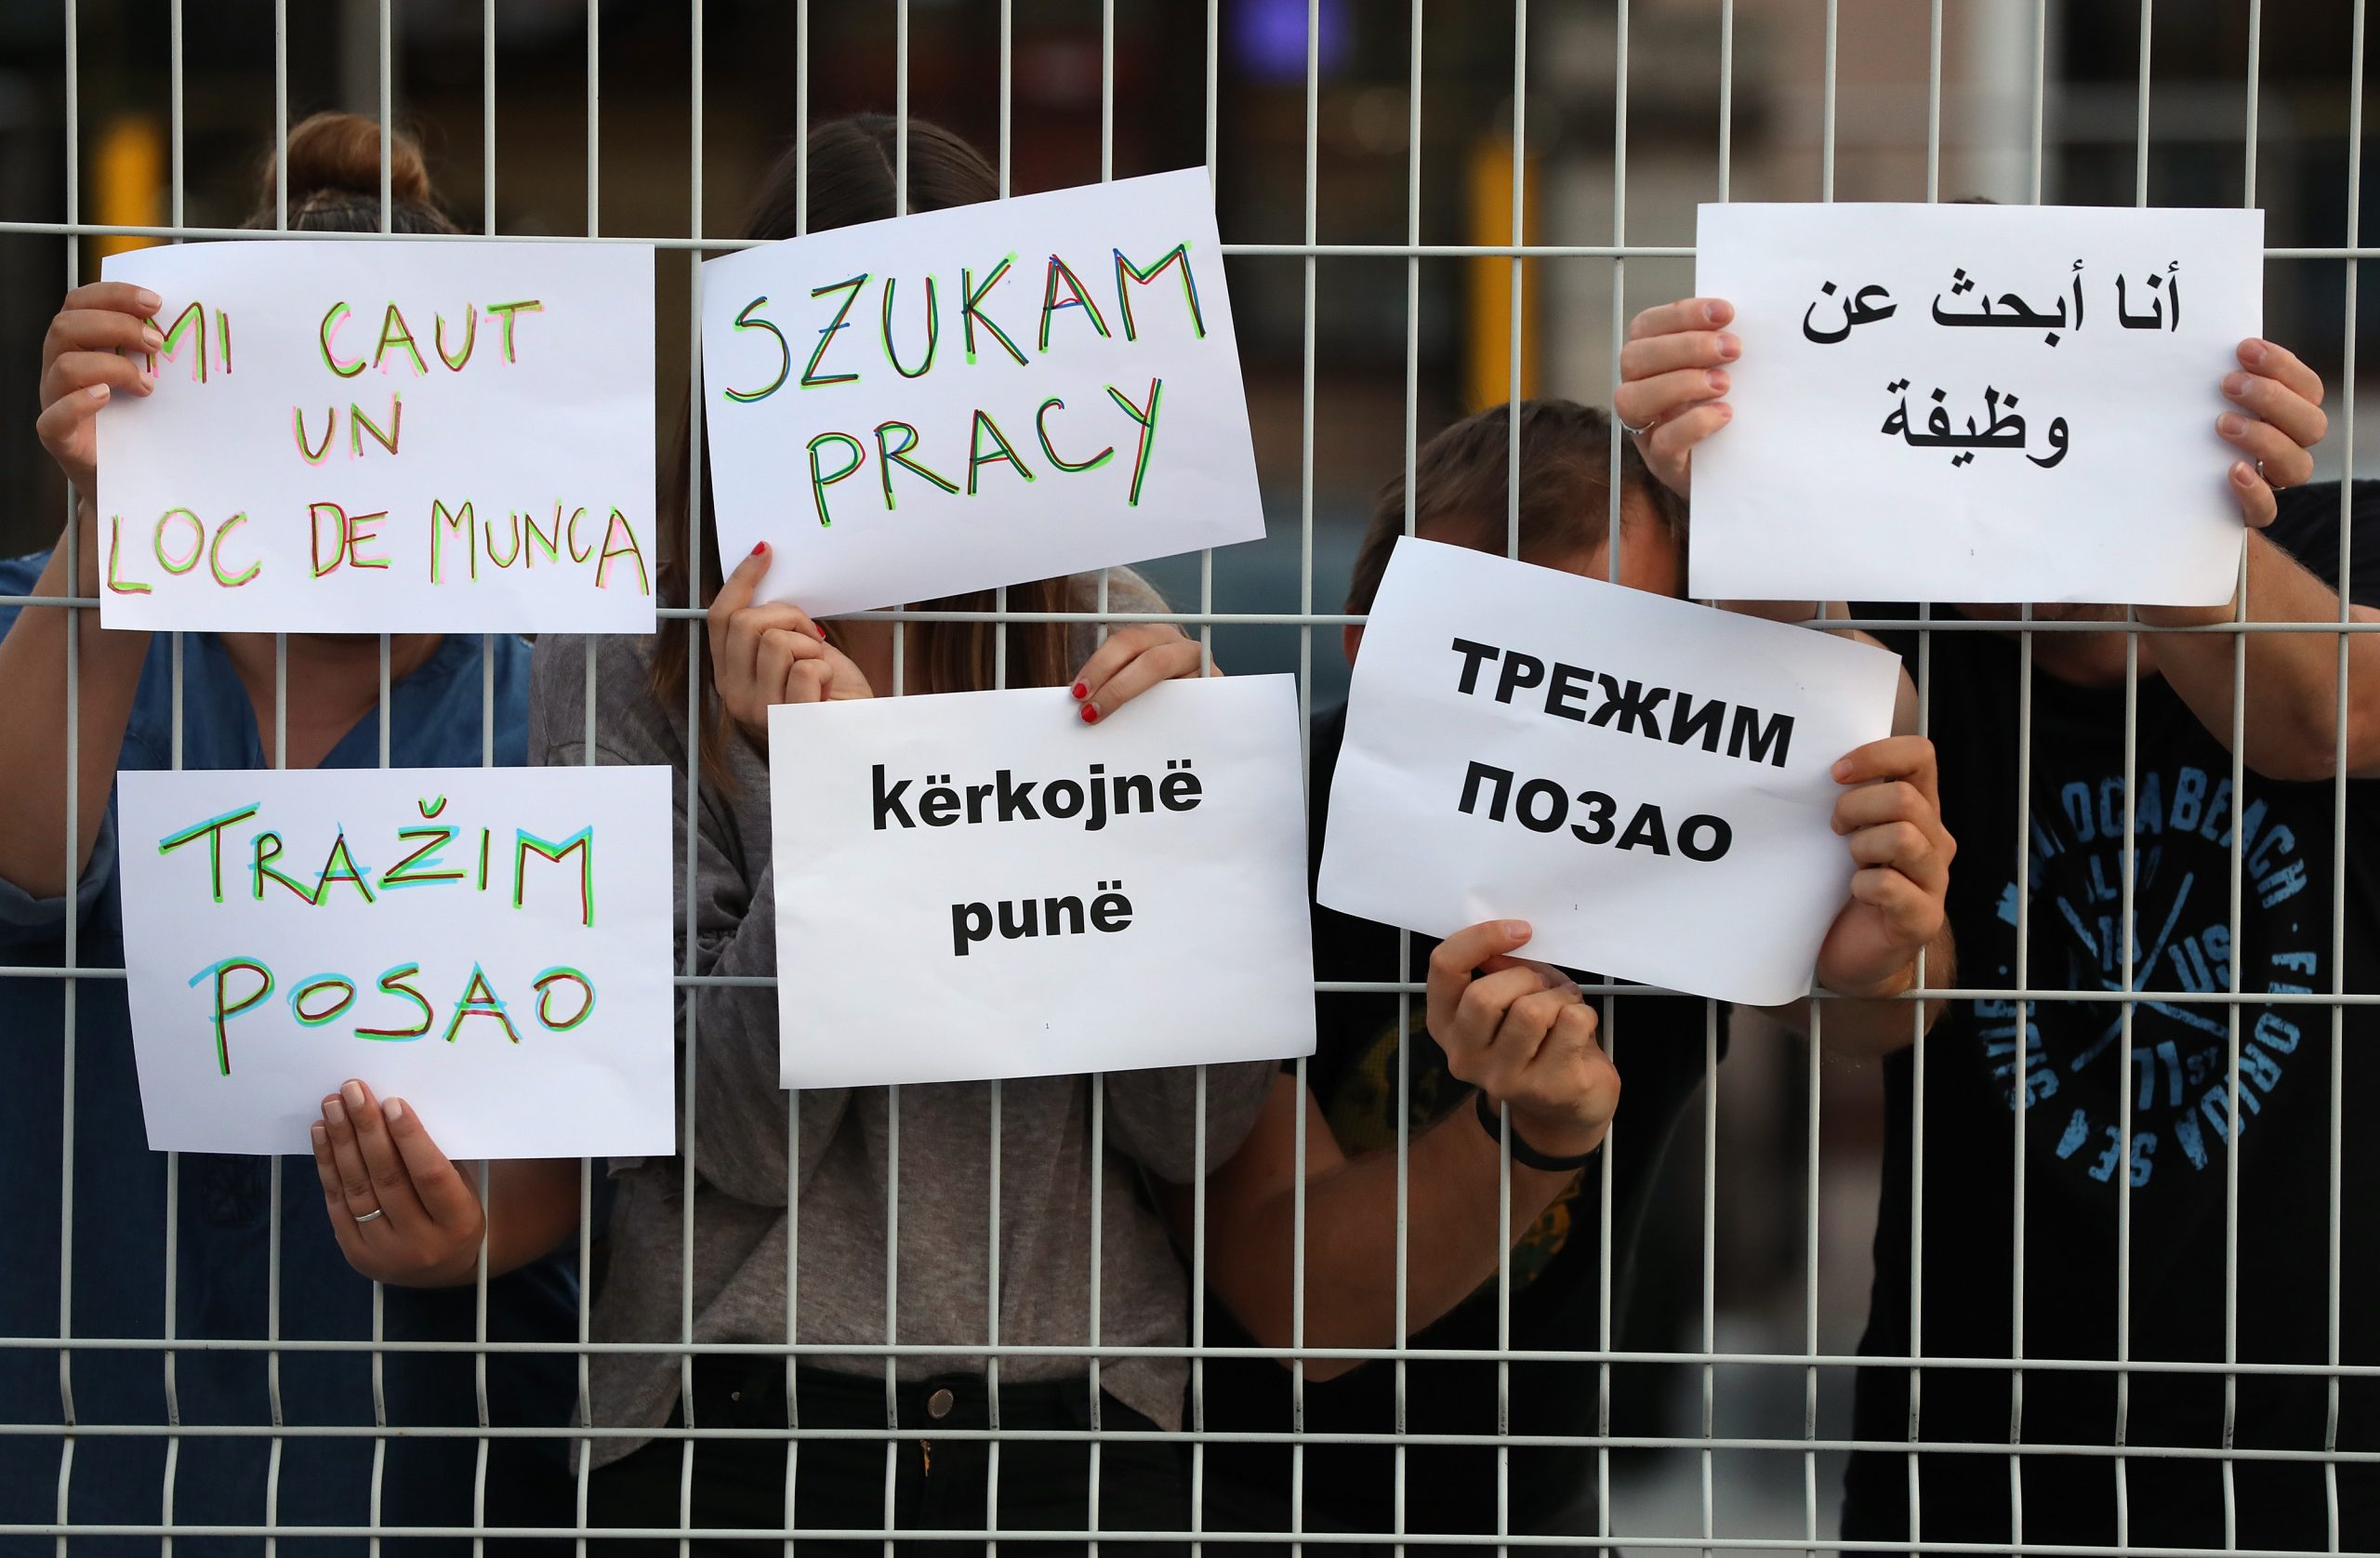 MI CAUT
UN
LOC DE MUNCA
SZUKAM
PRACY
أنا أبحث عن
وظيفة
TRAŽIM
POSAO
kërkojnë
punë
1
ТРЕЖИМ
ПОЗАО
1
BEACH · FLORIDA
US
71ST
SEA